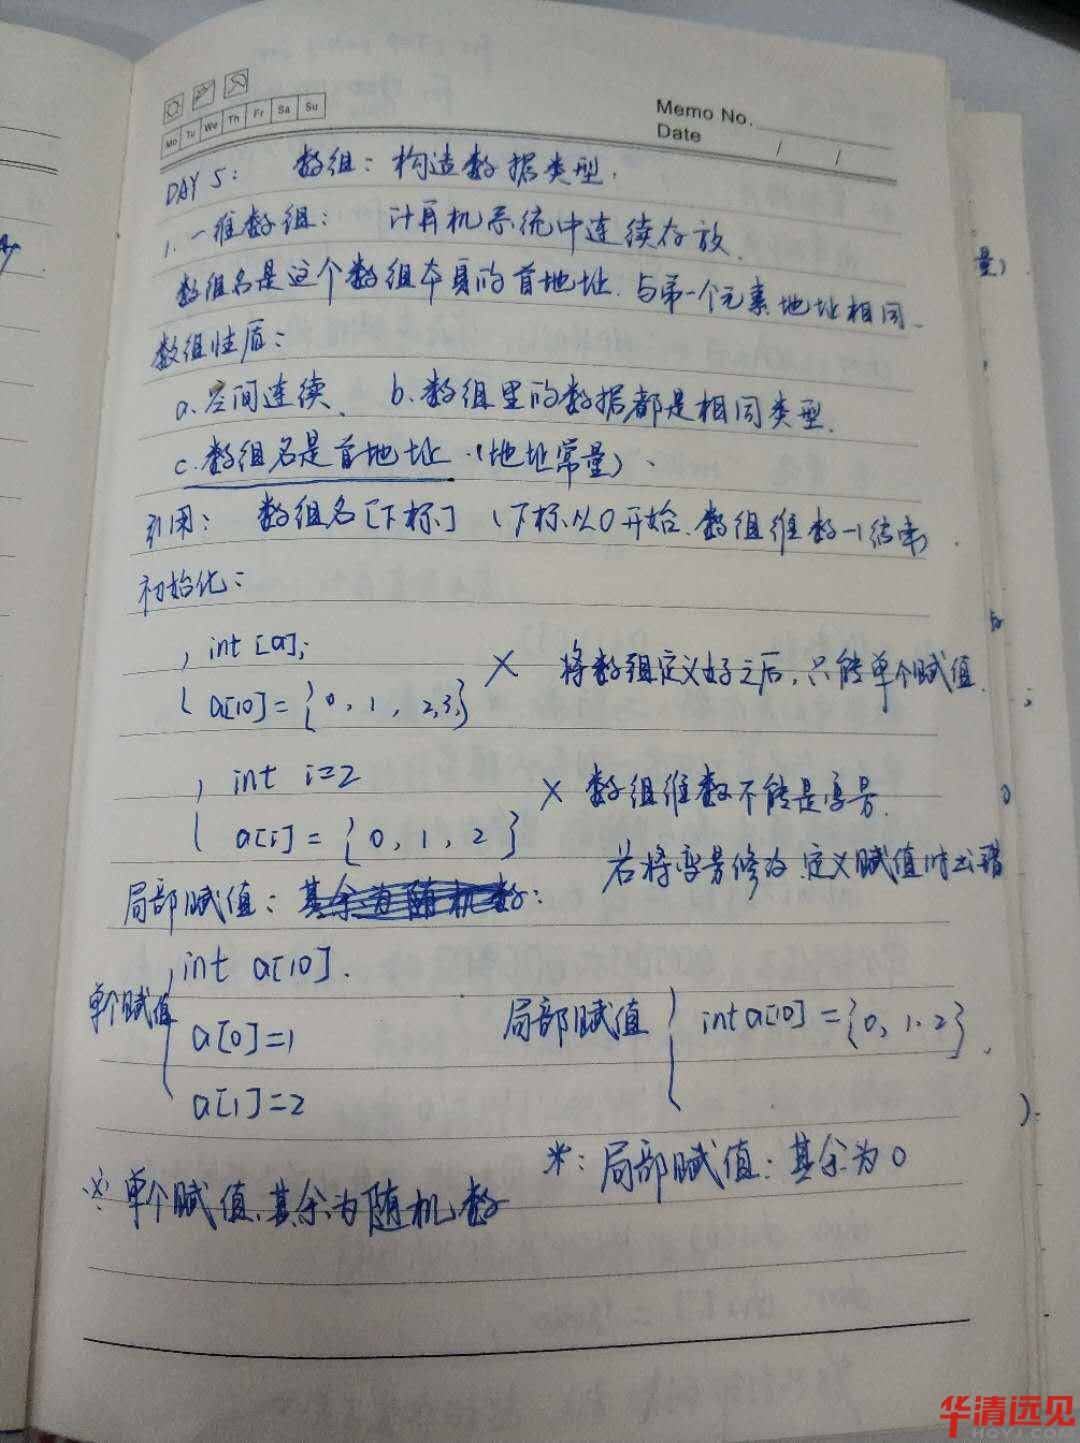 Mo Tu We Th Fr Sa Su
Memo No.
Date / /
DAY 5: 数组：构造数据类型.
1. 一维数组： 计算机系统中连续存放.
数组名是这个数组本身的首地址.与第一个元素地址相同.
数组性质：
a.空间连续、 b.数组里的数据都是相同类型.
c.数组名是首地址.（地址常量）、
引用： 数组名[下标] （下标从0开始.数组维数-1结束）.
初始化：
int [a];
a[10]={0, 1, 2,3,} × 将数组定义好之后,只能单个赋值.
int i=2
a[i]={0, 1, 2} × 数组维数不能是变号.
若将变号修改.定义赋值时出错
局部赋值：其余为随机数：
int a[10].
单个赋值
a[0]=1
a[1]=2
局部赋值 int a[10]={0, 1.2}.
※：局部赋值：其余为0
※ 单个赋值、其余为随机数
量）
华清远见
HQYJ.COM